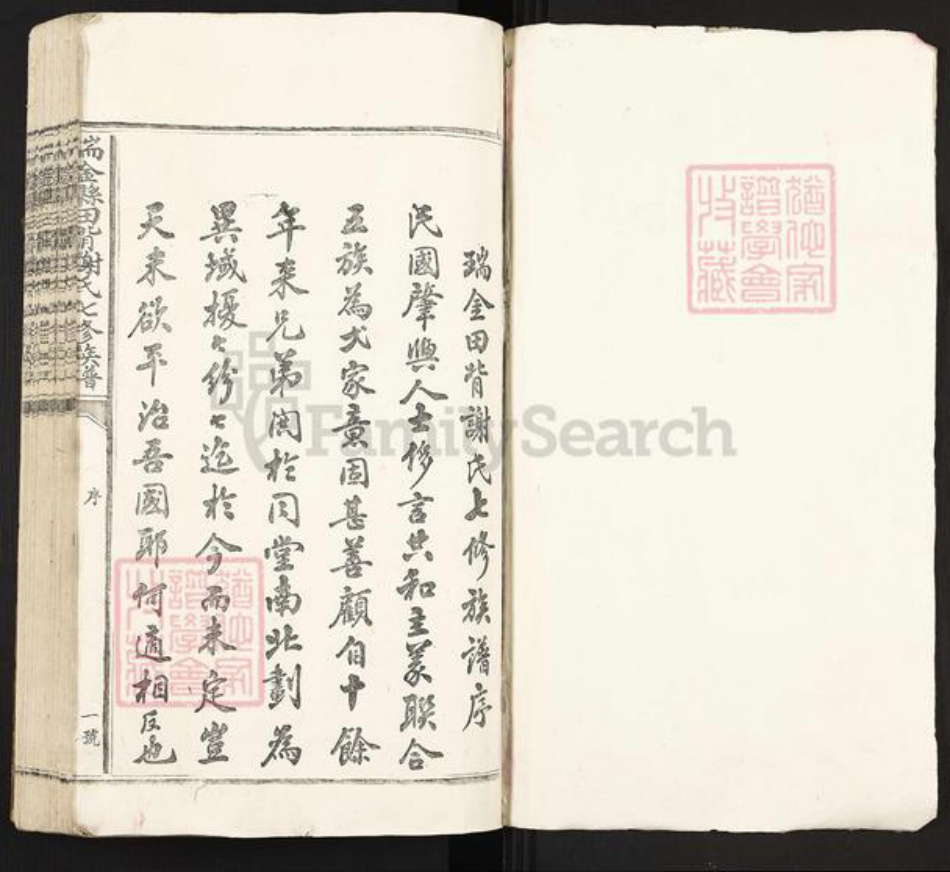 猶他家
譜學會
收藏
瑞金田背謝氏七修族譜序
民國肇興人士侈言共和主義聯合
五族為大家意固甚善顧自十餘
年來兄弟鬩於同堂南北劃為
異域擾々紛々迄於今而未定豈
天未欲平治吾國耶何適相反也
瑞金縣田背謝氏七修族譜
序
一號
猶他家
譜學會
收藏
FamilySearch